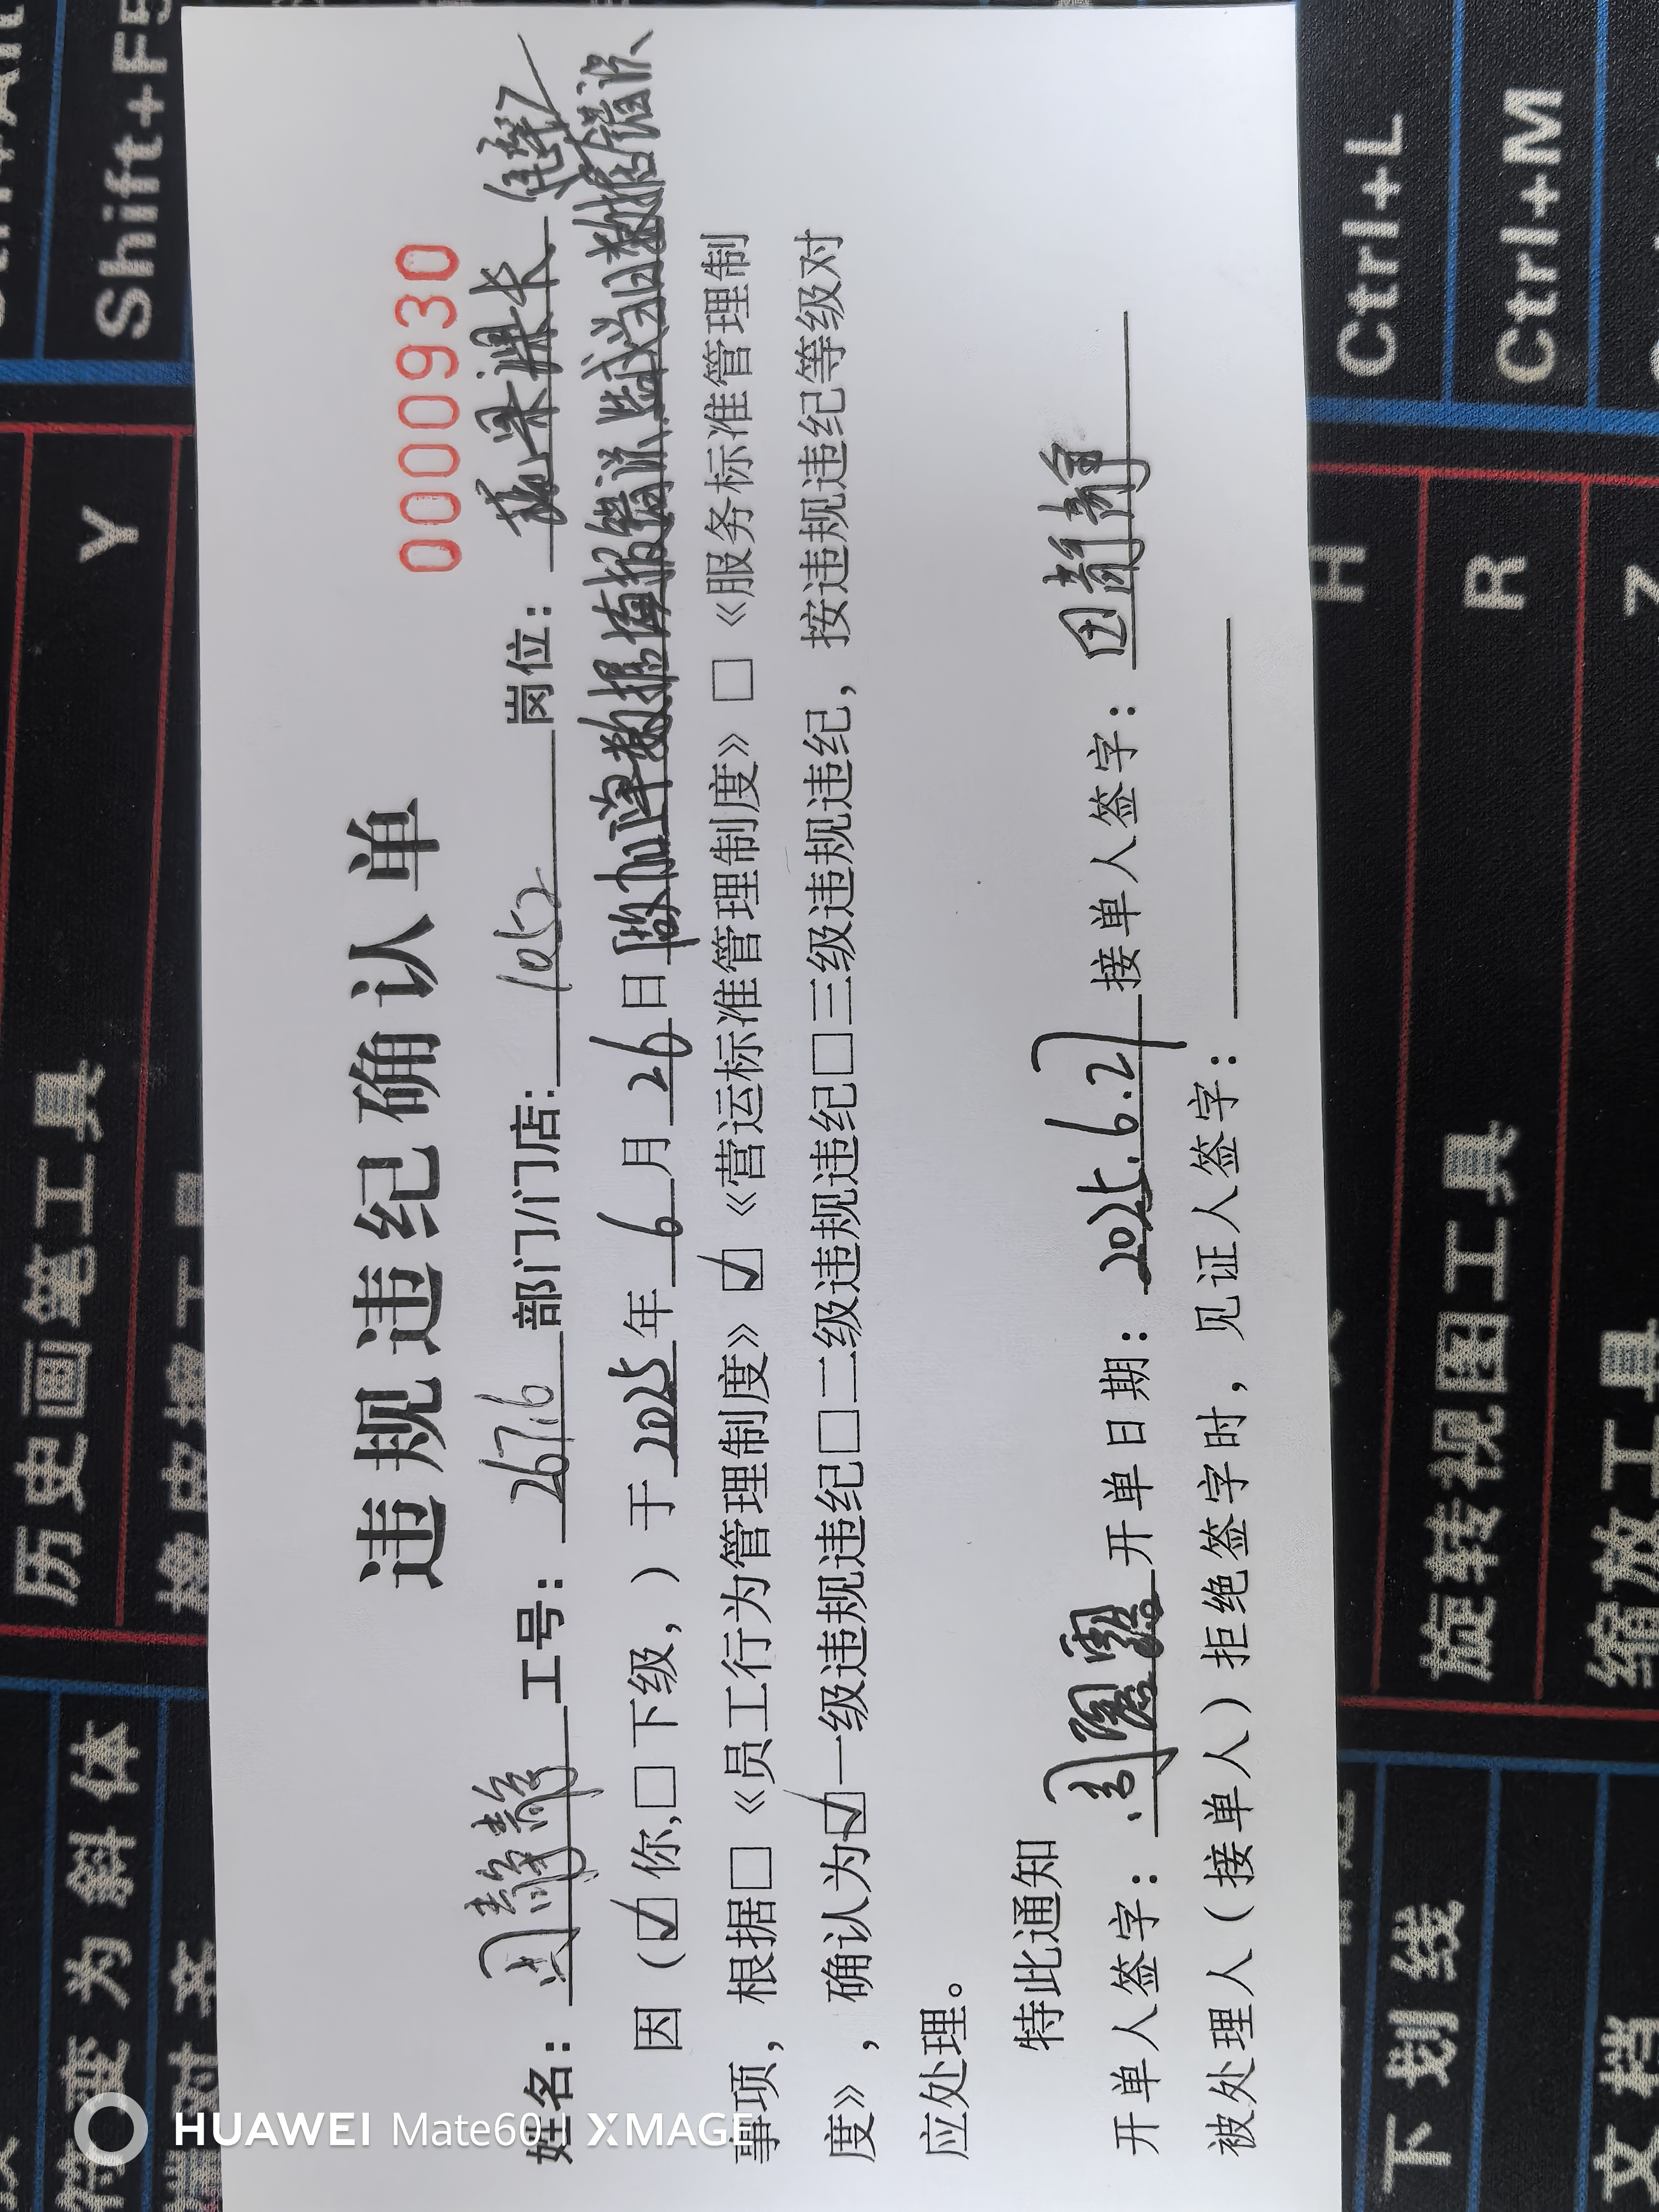 违规违纪确认单
000930
姓名： 静静 工号：2676 部门/门店:1052 岗位： 课长
因（☑你,□下级，）于2025年6月26日 数据 错误 数据错误
事项，根据□《员工行为管理制度》☑《营运标准管理制度》□《服务标准管理制
度》，确认为☑一级违规违纪□二级违规违纪□三级违规违纪，按违规违纪等级对
应处理。
特此通知
开单人签字：周 开单日期：2025.6.27 接单人签字：田静静
被处理人（接单人）拒绝签字时，见证人签字：
Shift+F5
Y
历史画笔工具
橡皮擦工具
符变为斜体
端对齐
Ctrl+L
Ctrl+M
H
R
Z
旋转视图工具
缩放工具
下划线
文档
HUAWEI Mate60 XMAGE